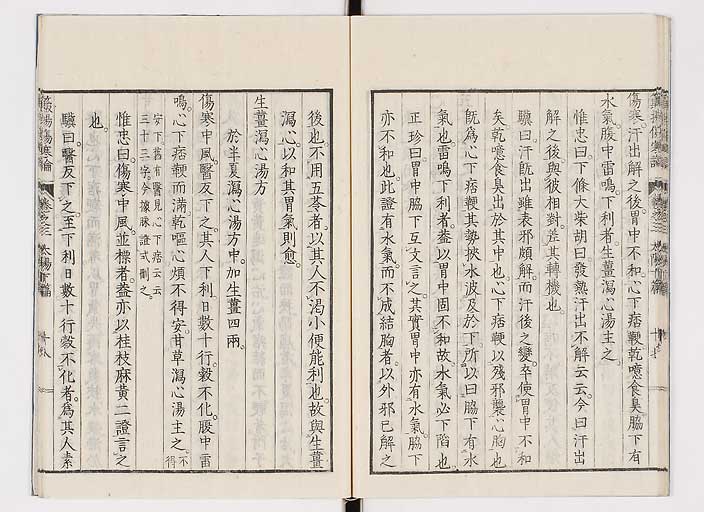 傷寒。汗出解之後。胃中不和。心下痞鞕。乾噫食臭。脇下有
水氣。腹中雷鳴。下利者。生薑瀉心湯主之。
惟忠曰。下條大柴胡曰。發熱汗出不解云云。今曰汗出
解之後。與彼相對。差其轉機也。
驥曰。汗既出。雖表邪頗解。而汗後之變。卒使胃中不和
矣。乾噫食臭。出於其中也。心下痞鞕。以殘邪襲心胸也。
既爲心下痞鞕。其勢挾水波及於下。所以曰脇下有水
氣也。雷鳴下利者。蓋以胃中固不和。故水氣必下陷也。
正珍曰。胃中脇下互文言之。其實胃中亦有水氣。脇下
亦不和也。此證有水氣。而不成結胸者。以外邪已解之
後也。不用五苓者。以其人不渴。小便能利也。故與生薑
瀉心。以和其胃氣則愈。
生薑瀉心湯方
於半夏瀉心湯方中。加生薑四兩。
傷寒中風。醫反下之。其人下利。日數十行。穀不化。腹中雷
鳴。心下痞鞕而滿。乾嘔心煩。不得安。甘草瀉心湯主之。不得
安下舊有醫見心下痞云云
三十三字今據脉證式刪之
惟忠曰。傷寒中風。並標者。蓋亦以桂枝麻黃二證言之
也。
驥曰。醫反下之。至下利日數十行。穀不化者。爲其人素
太陽下篇